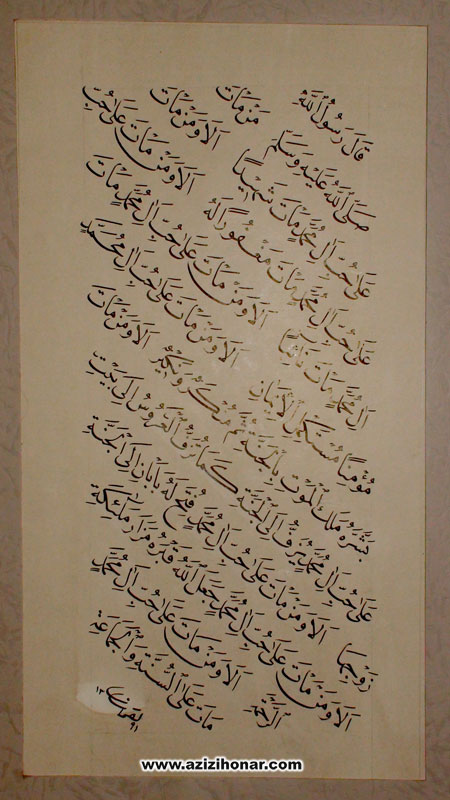 قَالَ رَسُولُ اللّٰهِ
صَلَّى اللّٰهُ عَلَيْهِ وَسَلَّمَ مَنْ مَاتَ
عَلَى حُبِّ آلِ مُحَمَّدٍ مَاتَ شَهِيدًا أَلَا وَمَنْ مَاتَ
عَلَى حُبِّ آلِ مُحَمَّدٍ مَاتَ مَغْفُورًا لَهُ أَلَا وَمَنْ مَاتَ عَلَى حُبِّ
آلِ مُحَمَّدٍ مَاتَ تَائِبًا أَلَا وَمَنْ مَاتَ عَلَى حُبِّ آلِ مُحَمَّدٍ مَاتَ
مُؤْمِنًا مُسْتَكْمِلَ الْإِيمَانِ أَلَا وَمَنْ مَاتَ عَلَى حُبِّ آلِ مُحَمَّدٍ
بَشَّرَهُ مَلَكُ الْمَوْتِ بِالْجَنَّةِ ثُمَّ مُنْكَرٌ وَنَكِيرٌ أَلَا وَمَنْ مَاتَ
عَلَى حُبِّ آلِ مُحَمَّدٍ يُزَفُّ إِلَى الْجَنَّةِ كَمَا تُزَفُّ الْعَرُوسُ إِلَى بَيْتِ
زَوْجِهَا أَلَا وَمَنْ مَاتَ عَلَى حُبِّ آلِ مُحَمَّدٍ فُتِحَ لَهُ بَابَانِ إِلَى الْجَنَّةِ
أَلَا وَمَنْ مَاتَ عَلَى حُبِّ آلِ مُحَمَّدٍ جَعَلَ اللّٰهُ قَبْرَهُ مَزَارَ مَلَائِكَةِ
الرَّحْمَةِ أَلَا وَمَنْ مَاتَ عَلَى حُبِّ آلِ مُحَمَّدٍ
مَاتَ عَلَى السُّنَّةِ وَالْجَمَاعَةِ
www.azizihonar.com